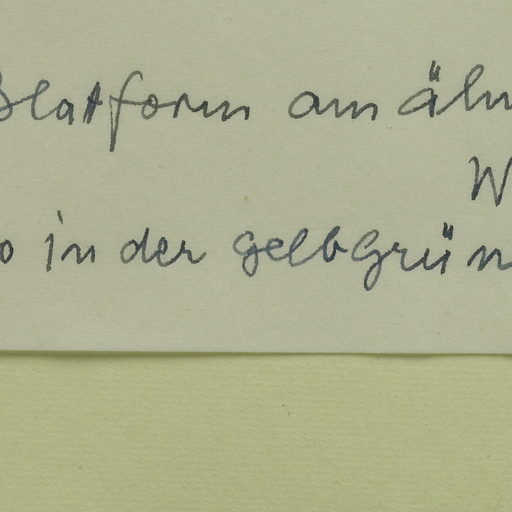 Blattform am ähn
W
o in der gelbgrün